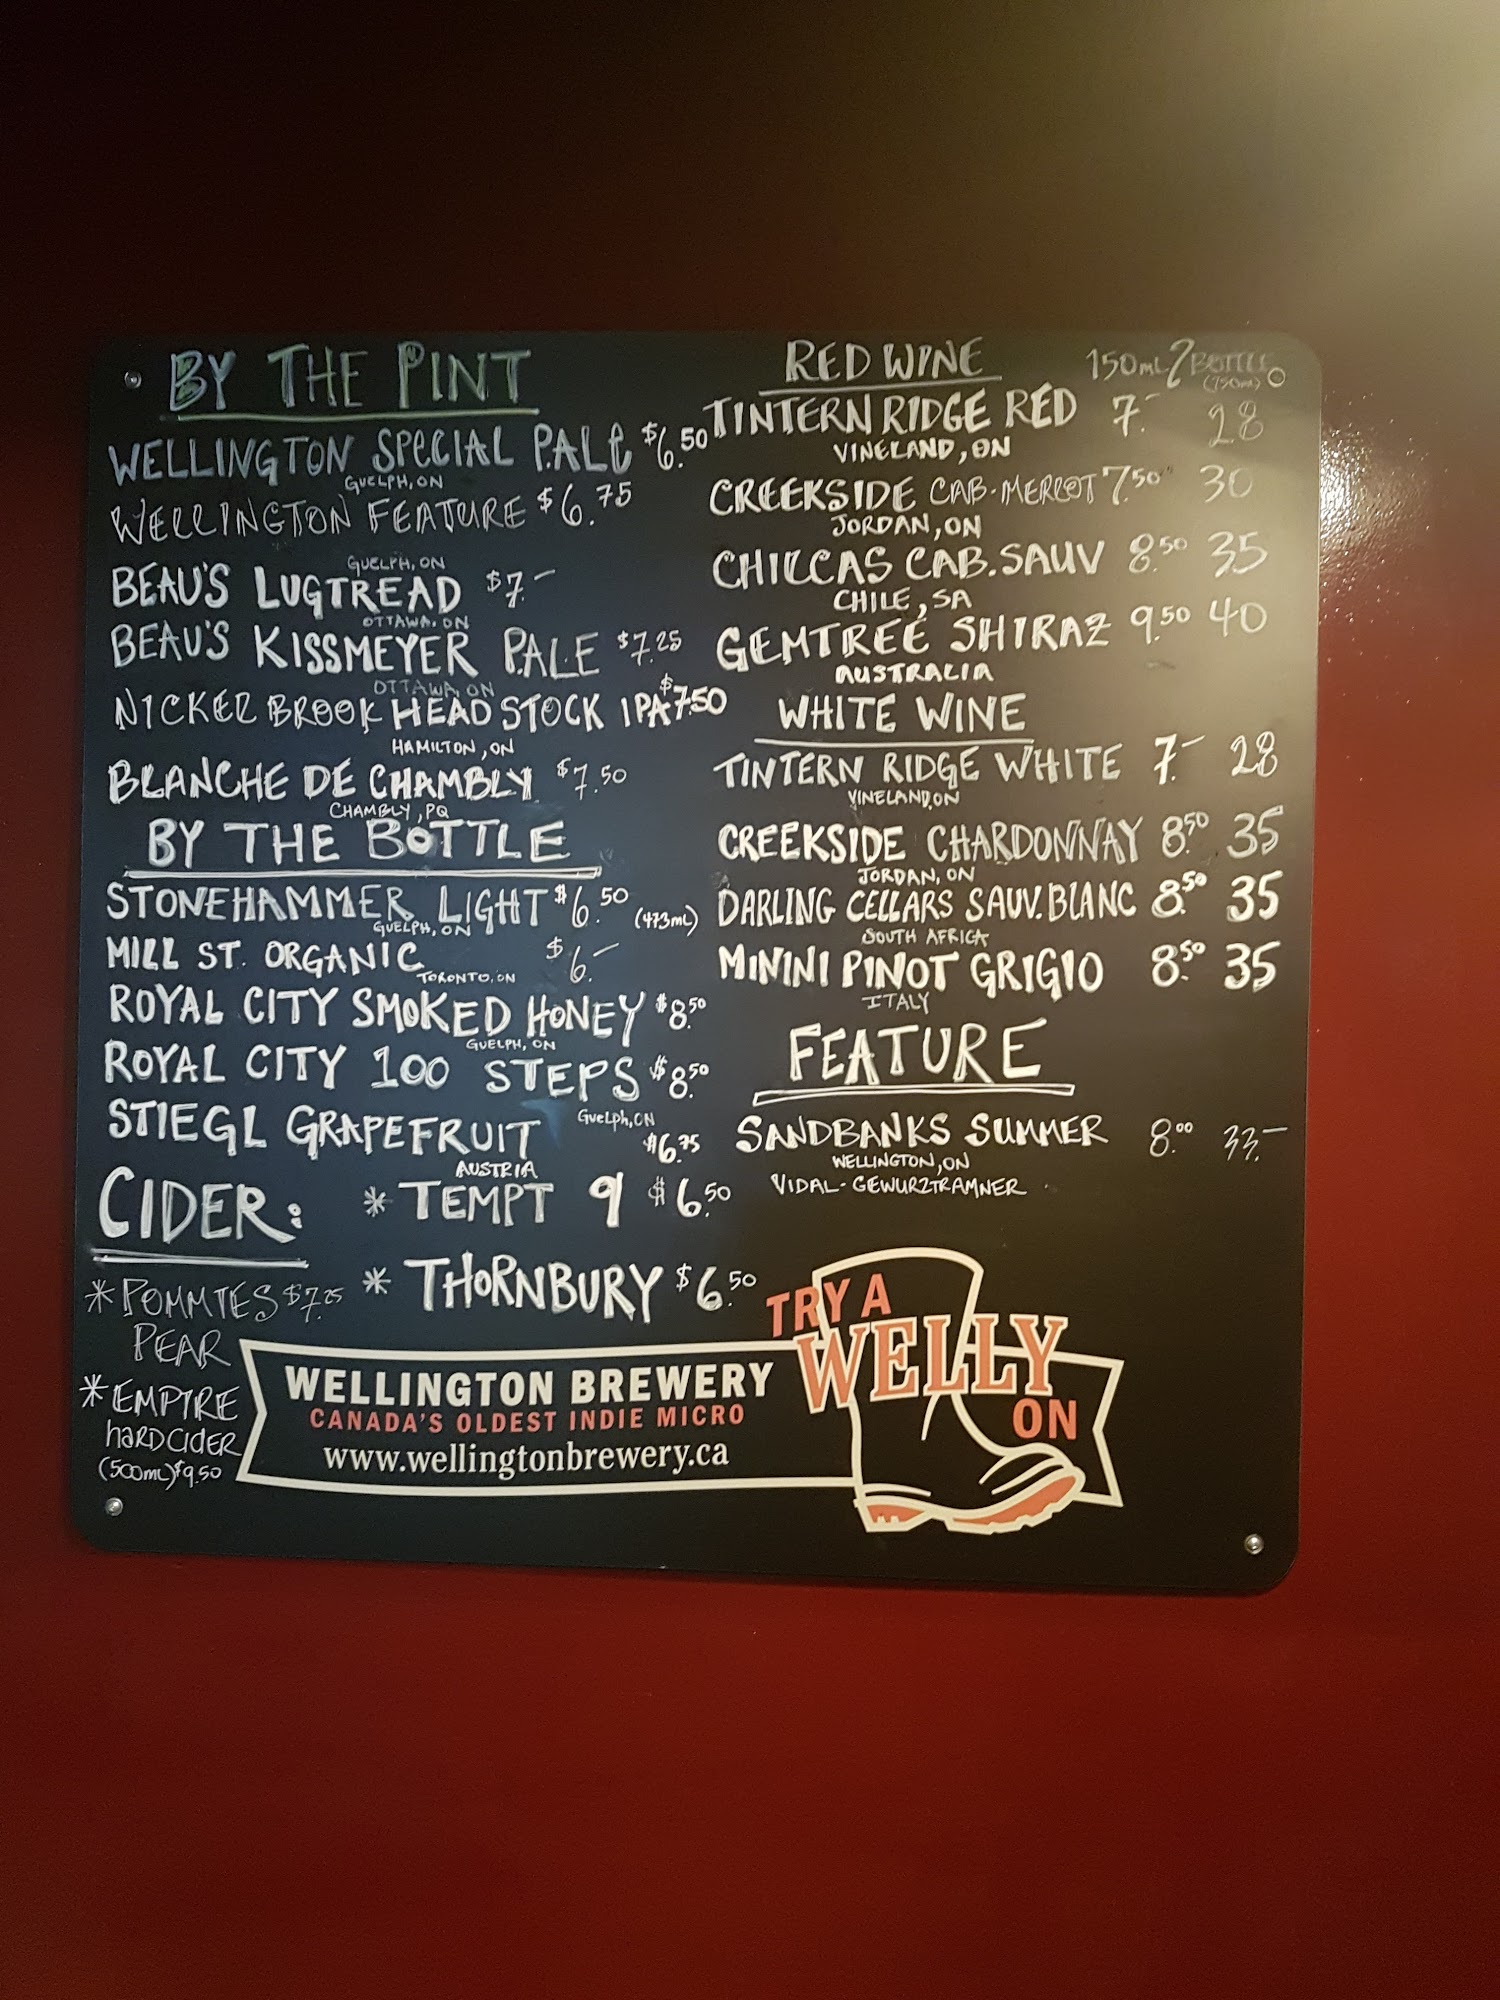 BY THE PINT
WELLINGTON SPECIAL P.ALE $6.50
GUELPH, ON
WELLINGTON FEATURE $6.75
GUELPH, ON
BEAU'S LUGTREAD $7.-
OTTAWA, ON
BEAU'S KISSMEYER P.ALE $7.25
OTTAWA, ON
NICKEL BROOK HEAD STOCK IPA $7.50
HAMILTON, ON
BLANCHE DE CHAMBLY $7.50
CHAMBLY, PQ
BY THE BOTTLE
STONEHAMMER LIGHT $6.50 (473mL)
GUELPH, ON
MILL ST. ORGANIC $6.-
TORONTO, ON
ROYAL CITY SMOKED HONEY $8.50
GUELPH, ON
ROYAL CITY 100 STEPS $8.50
GUELPH, ON
STIEGL GRAPEFRUIT $6.75
AUSTRIA
CIDER:
* TEMPT 9 $6.50
* THORNBURY $6.50
* POMMIES $7.25
PEAR
* EMPIRE
HARD CIDER
(500mL) $9.50
RED WINE 150mL BOTTLE
(750mL)
TINTERN RIDGE RED 7.- 28
VINELAND, ON
CREEKSIDE CAB-MERLOT 7.50 30
JORDAN, ON
CHILCAS CAB. SAUV 8.50 35
CHILE, SA
GEMTREE SHIRAZ 9.50 40
AUSTRALIA
WHITE WINE
TINTERN RIDGE WHITE 7.- 28
VINELAND, ON
CREEKSIDE CHARDONNAY 8.50 35
JORDAN, ON
DARLING CELLARS SAUV. BLANC 8.50 35
SOUTH AFRICA
MININI PINOT GRIGIO 8.50 35
ITALY
FEATURE
SANDBANKS SUMMER 8.00 33.-
WELLINGTON, ON
VIDAL-GEWURZTRAMNER
WELLINGTON BREWERY
CANADA'S OLDEST INDIE MICRO
www.wellingtonbrewery.ca
TRY A
WELLY
ON